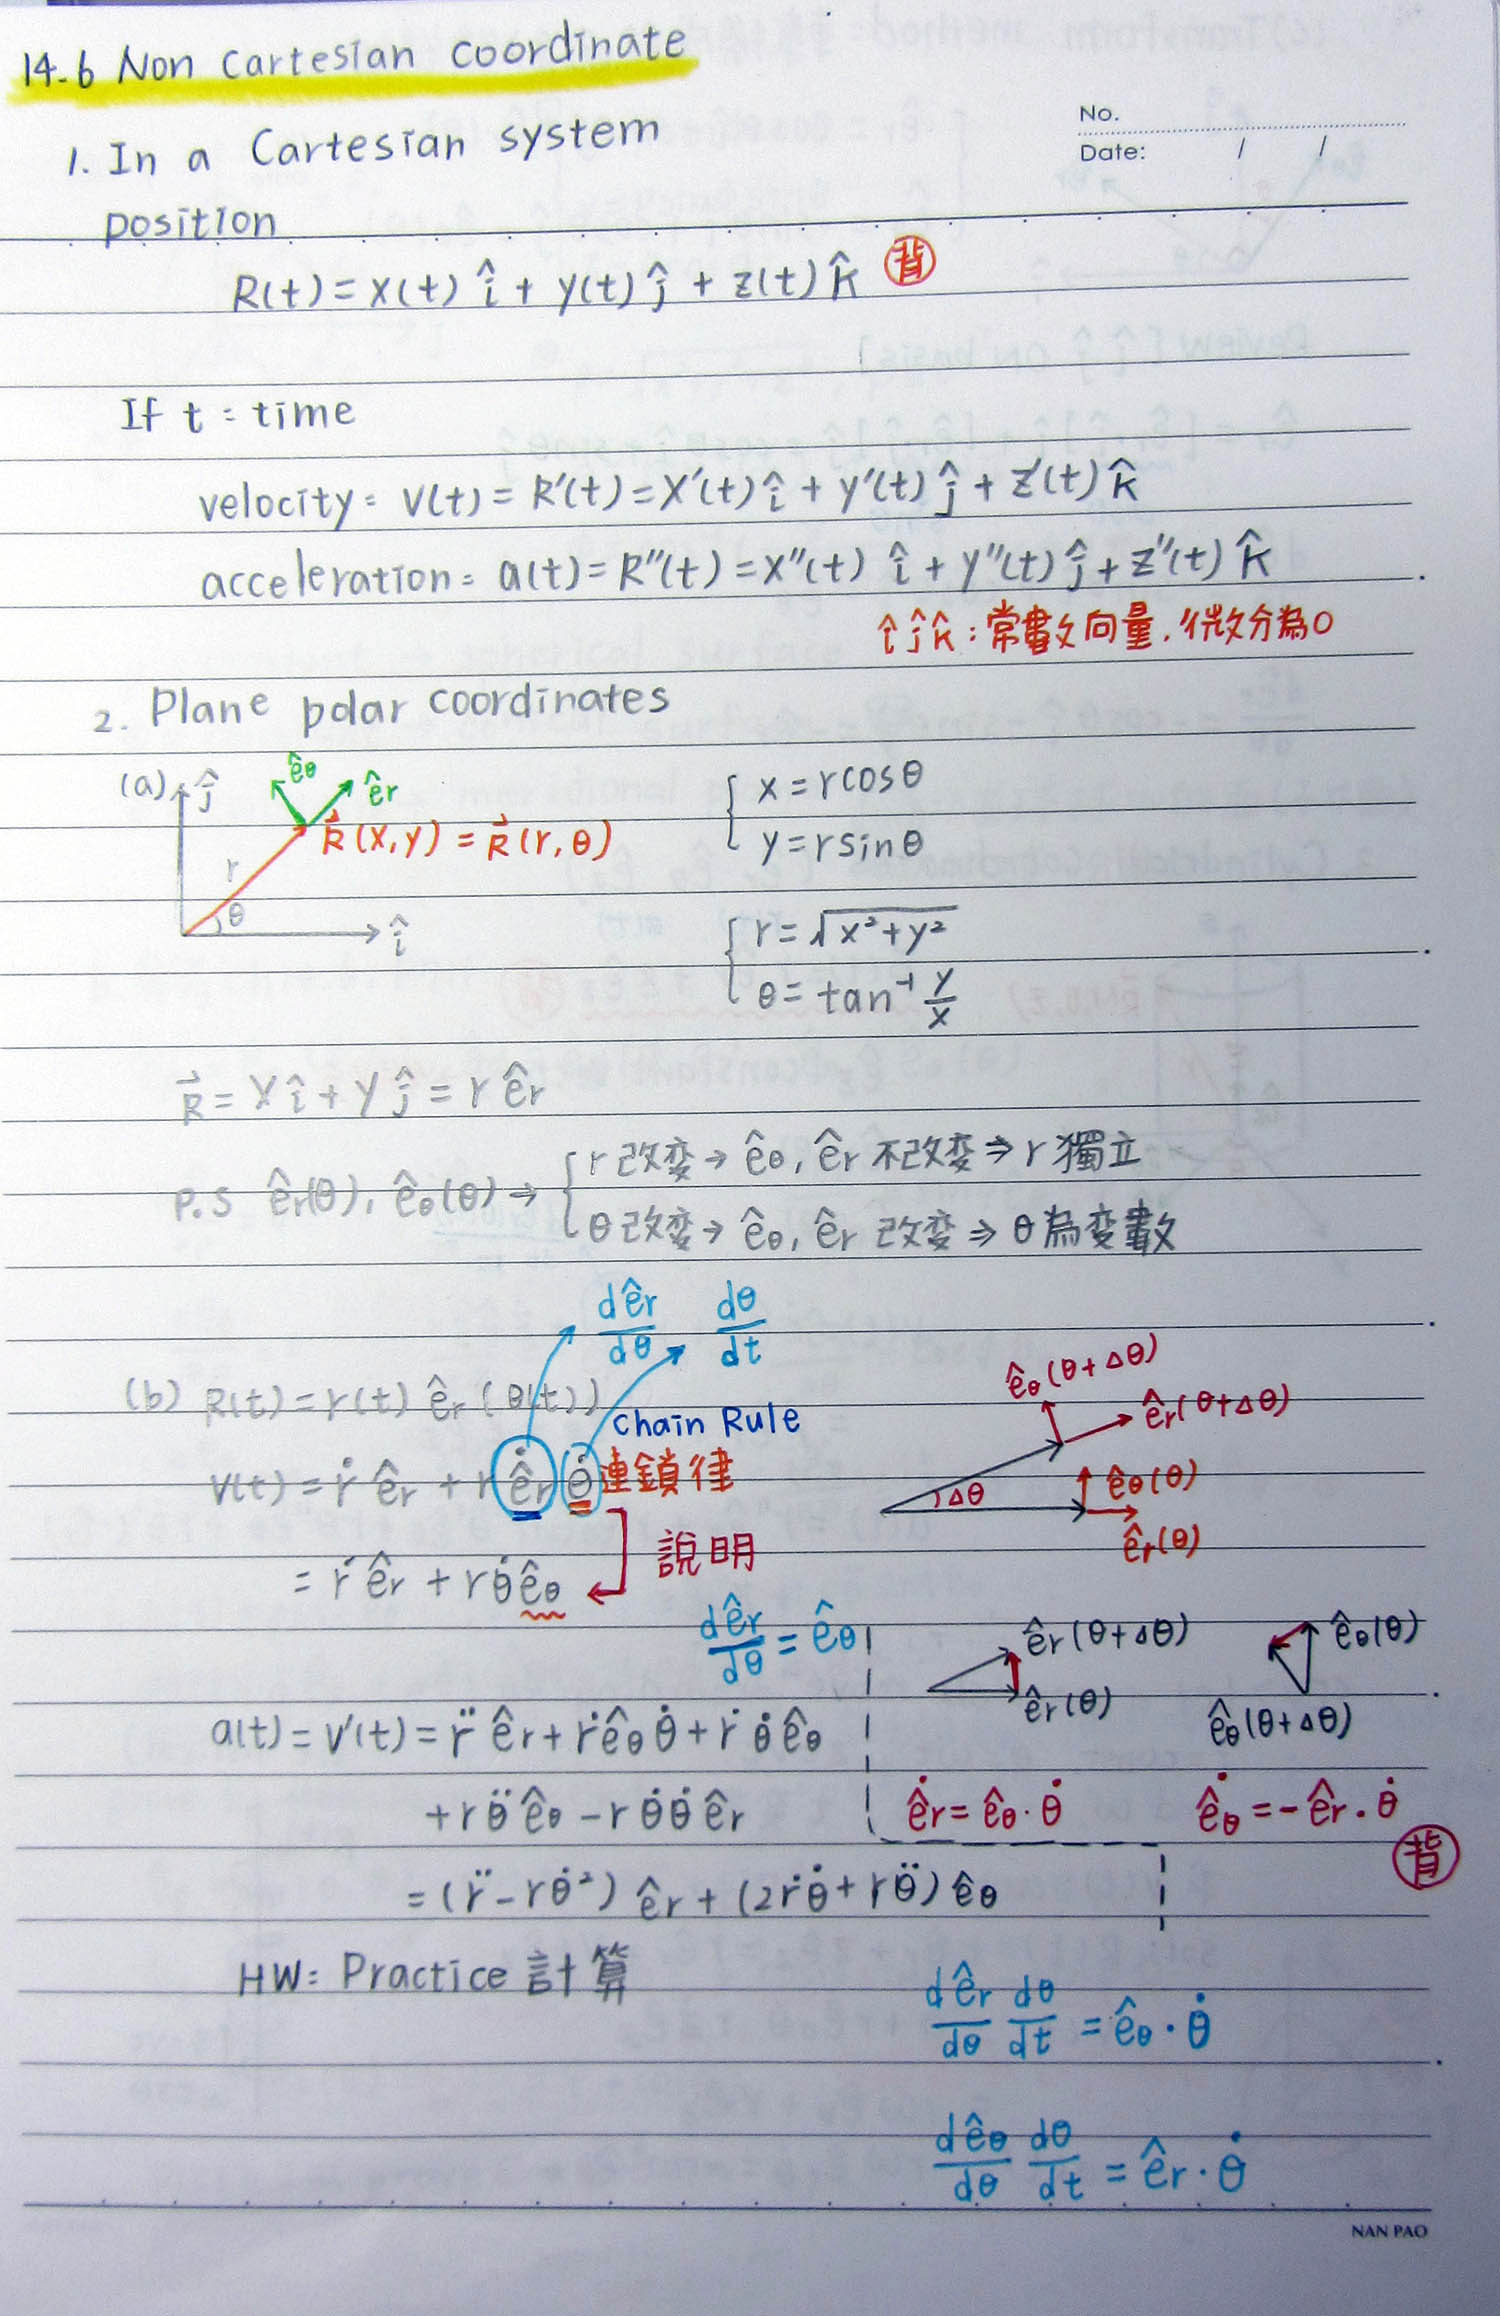 14-6 Non Cartesian coordinate
No.
Date: / /
1. In a Cartesian system
position
R(t) = x(t) î + y(t) ĵ + z(t) k̂ 背
If t = time
velocity = V(t) = R'(t) = X'(t) î + y'(t) ĵ + z'(t) k̂
acceleration = a(t) = R''(t) = x''(t) î + y''(t) ĵ + z''(t) k̂
î ĵ k̂ : 常數向量, 微分為0
2. Plane polar coordinates
(a) ĵ
êθ
êr
R⃗(x, y) = R⃗(r, θ)
r
θ
î
{ x = r cosθ
y = r sinθ
{ r = √x²+y²
θ = tan⁻¹ y/x
R⃗ = xî + yĵ = r êr
P.S êr(θ), êθ(θ) → { r 改變 → êθ, êr 不改變 ⇒ r 獨立
θ 改變 → êθ, êr 改變 ⇒ θ 為變數
dêr/dθ dθ/dt
(b) R(t) = r(t) êr (θ(t))
chain Rule
V(t) = ṙ êr + r ê̇r θ̇ 連鎖律
= ṙ êr + rθ̇êθ
說明
êθ(θ+Δθ)
êr(θ+Δθ)
Δθ
êθ(θ)
êr(θ)
dêr/dθ = êθ
êr(θ+Δθ)
êr(θ)
êθ(θ)
êθ(θ+Δθ)
a(t) = V'(t) = r̈ êr + ṙêθθ̇ + ṙ θ̇ êθ
+ rθ̈ êθ - r θ̇θ̇ êr
ê̇r = êθ · θ̇
ê̇θ = -êr · θ̇
背
= (r̈ - rθ̇²) êr + (2ṙθ̇ + rθ̈) êθ
HW: Practice 計算
dêr/dθ dθ/dt = êθ · θ̇
dêθ/dθ dθ/dt = êr · θ̇
NAN PAO